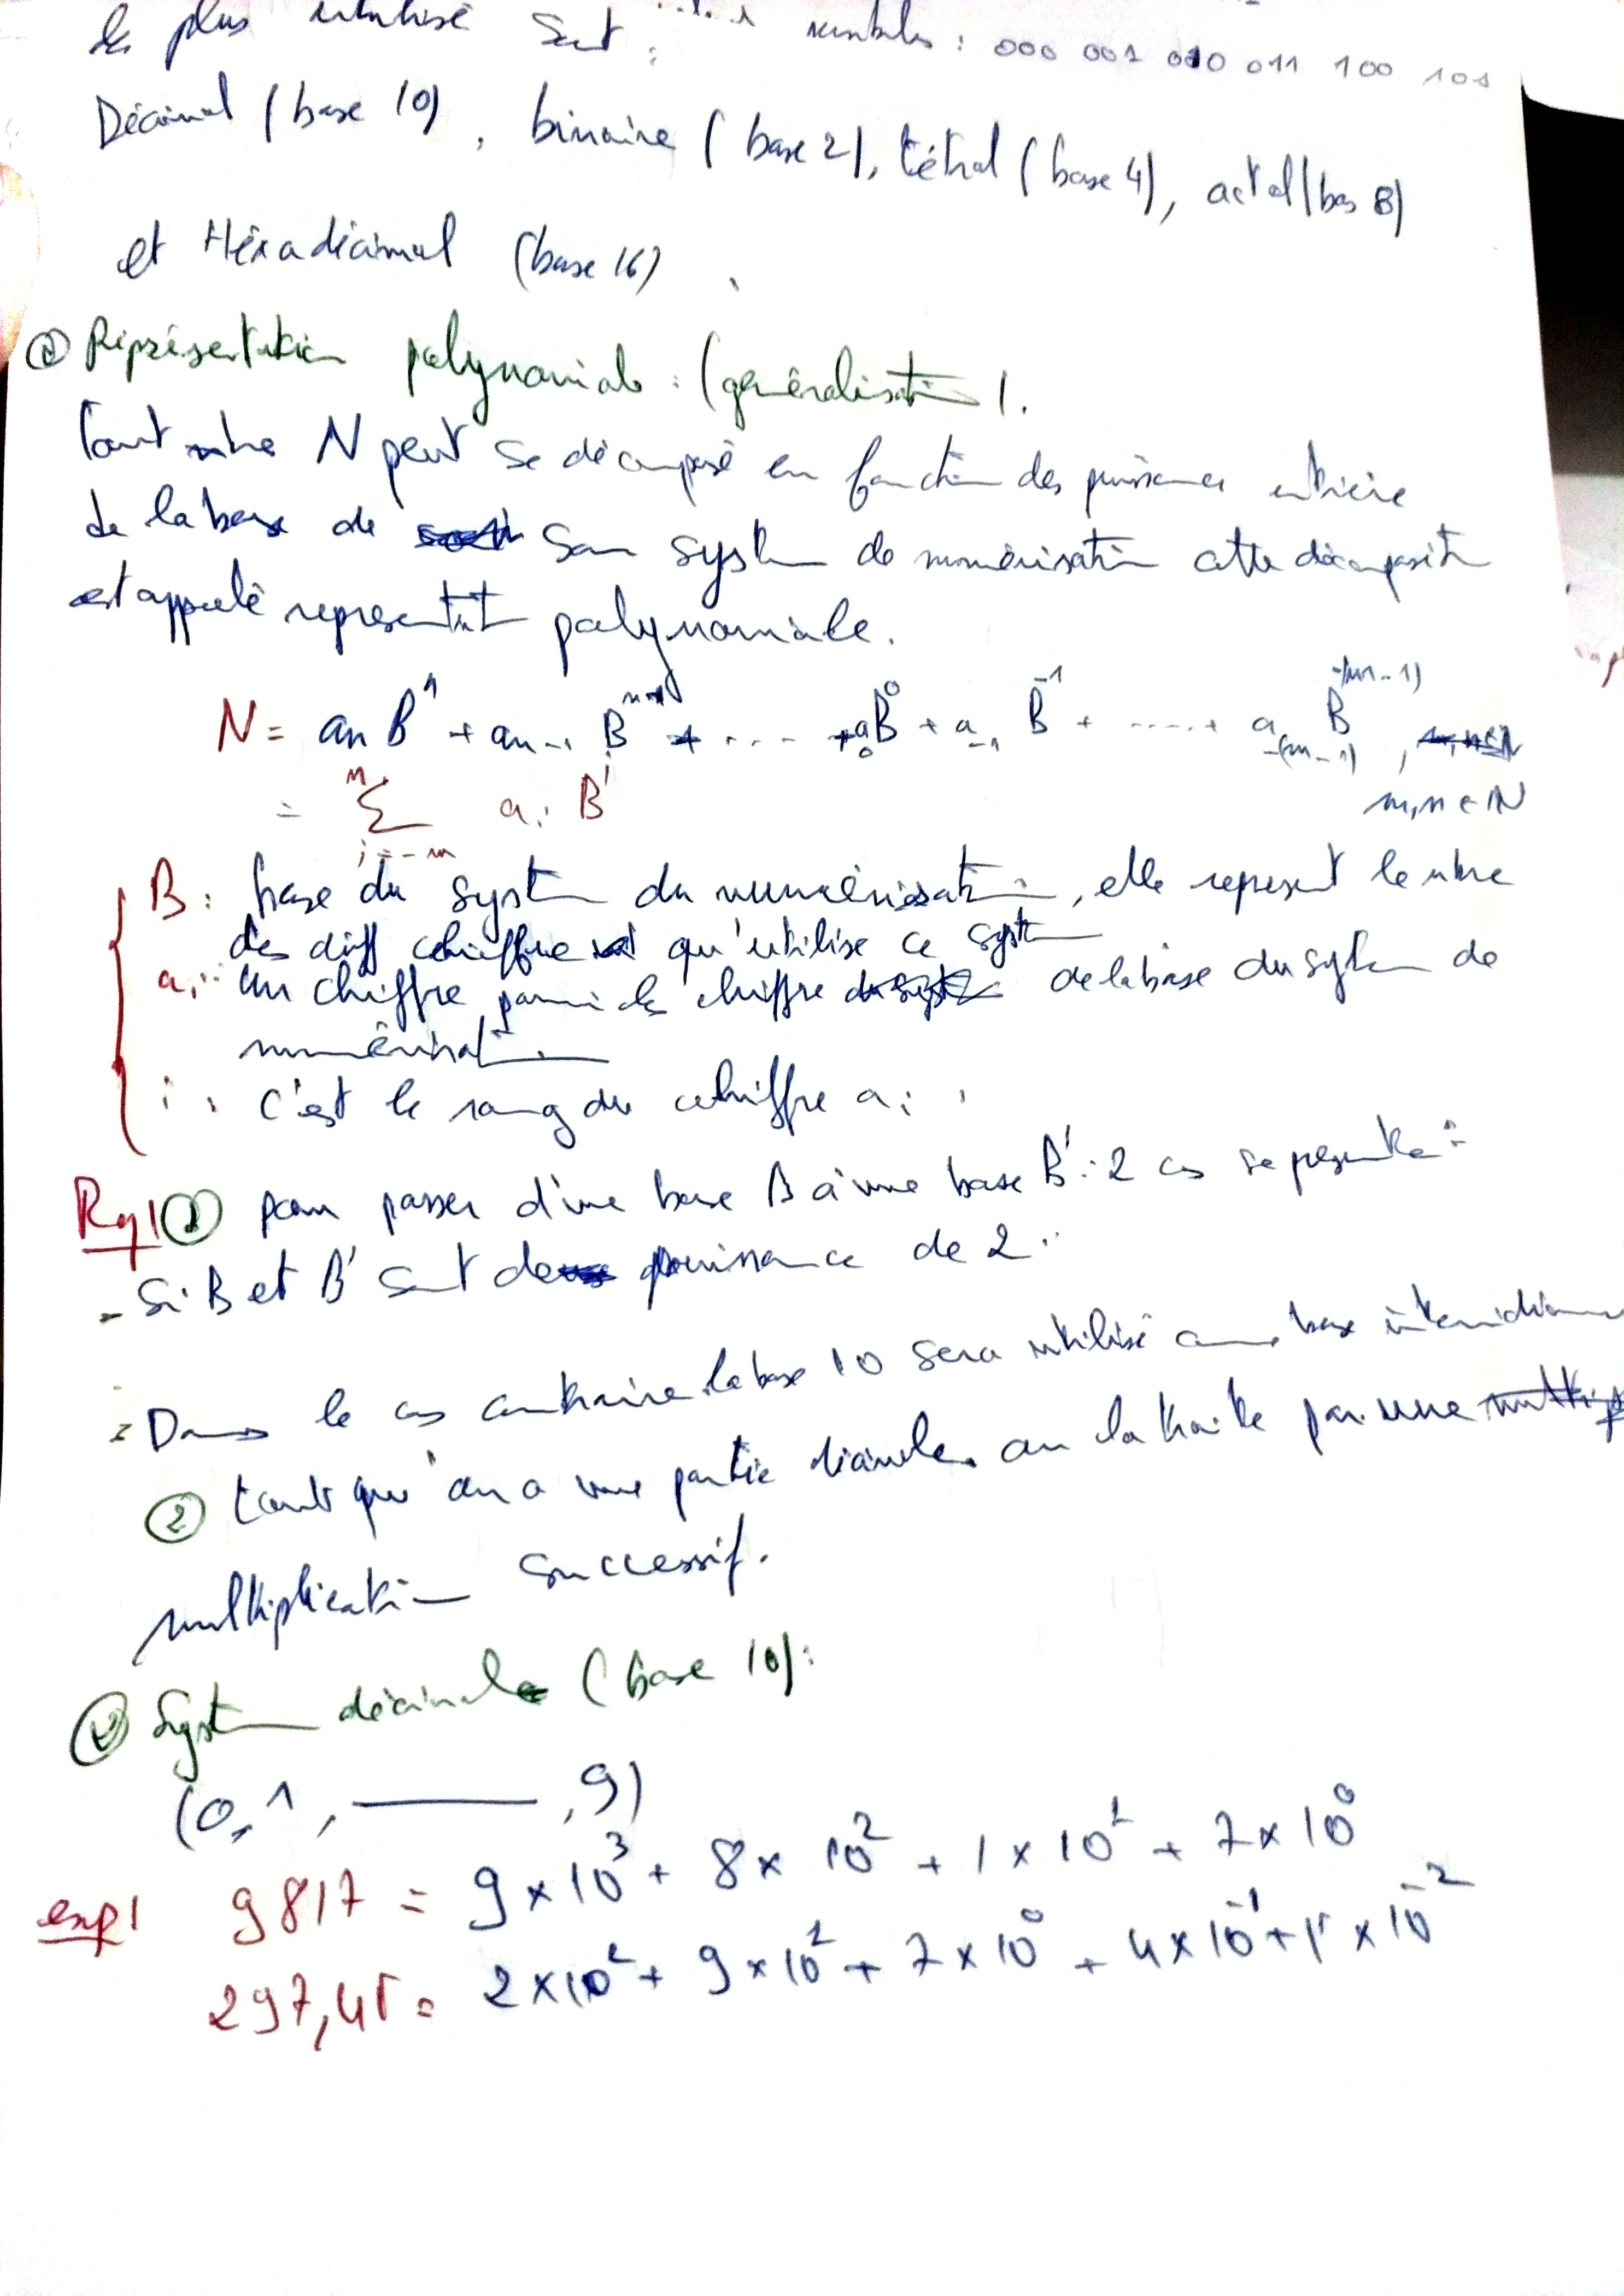 le plus utilisé sont :
nombres : 000 001 010 011 100 101
Décimal (base 10), binaire (base 2), tétral (base 4), actal (bas 8)
et Héxadécimal (base 16).
Réprésentation polynomiale : (généralisation).
Tout nbre N peut se décomposé en fonction des puissance entière
de la base de son system de numérisation cette décomposition
est appelé representation polynomiale.
N = an Bⁿ + an-1 Bⁿ⁻¹ + .... + a₀B⁰ + a₋₁ B⁻¹ + ..... + a₋(m-1) B⁻⁽ᵐ⁻¹⁾,
m,n ∈ N
= Σ ai Bⁱ
n
i = -m
B : base du system du numérisation, elle represent le nbre
des diff chiffre qu'utilise ce system
ai : un chiffre parmi les chiffre de la base du system de
numérisation.
i : c'est le rang du chiffre ai.
Rq! ① pour passer d'une base B à une base B' : 2 cas se présente :
- Si B et B' sont de puissance de 2.
- Dans le cas contraire la base 10 sera utilisé comme base
② tant qu'on a une partie décimale on la traite par une
multiplication successif.
System décimale (base 10) :
(0, 1, ———, 9)
exp! 9817 = 9 × 10³ + 8 × 10² + 1 × 10¹ + 7 × 10⁰
297,45 = 2 × 10² + 9 × 10¹ + 7 × 10⁰ + 4 × 10⁻¹ + 5 × 10⁻²